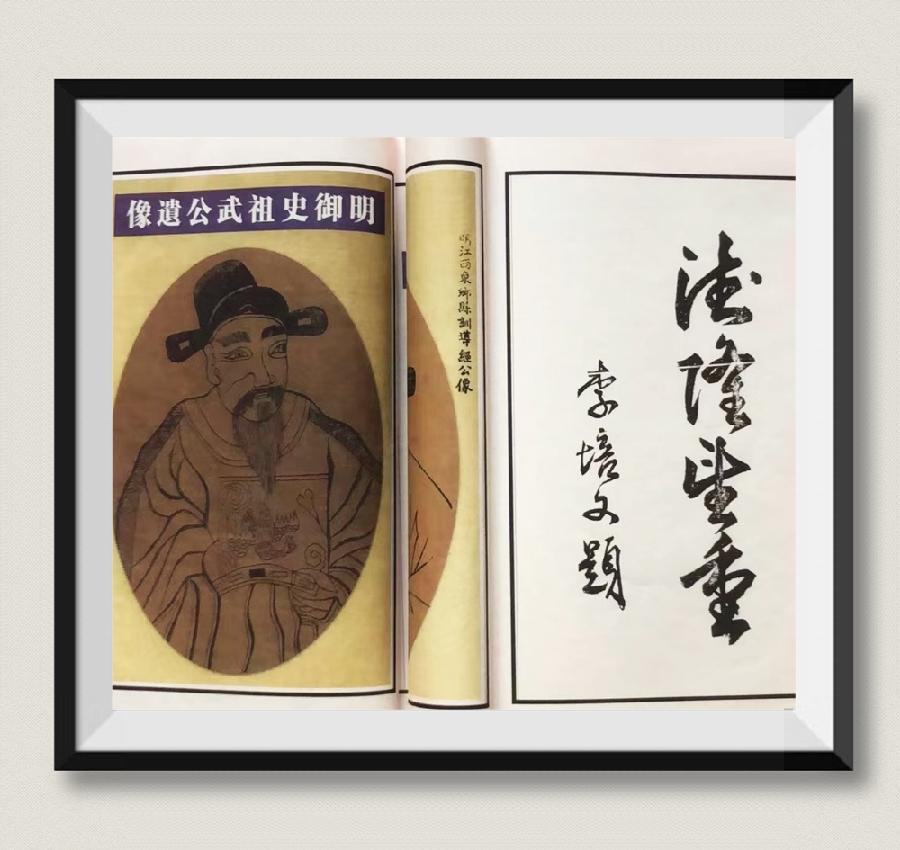 德隆望重
李培文題
明江西東鄉縣訓導經公像
明御史祖武公遺像